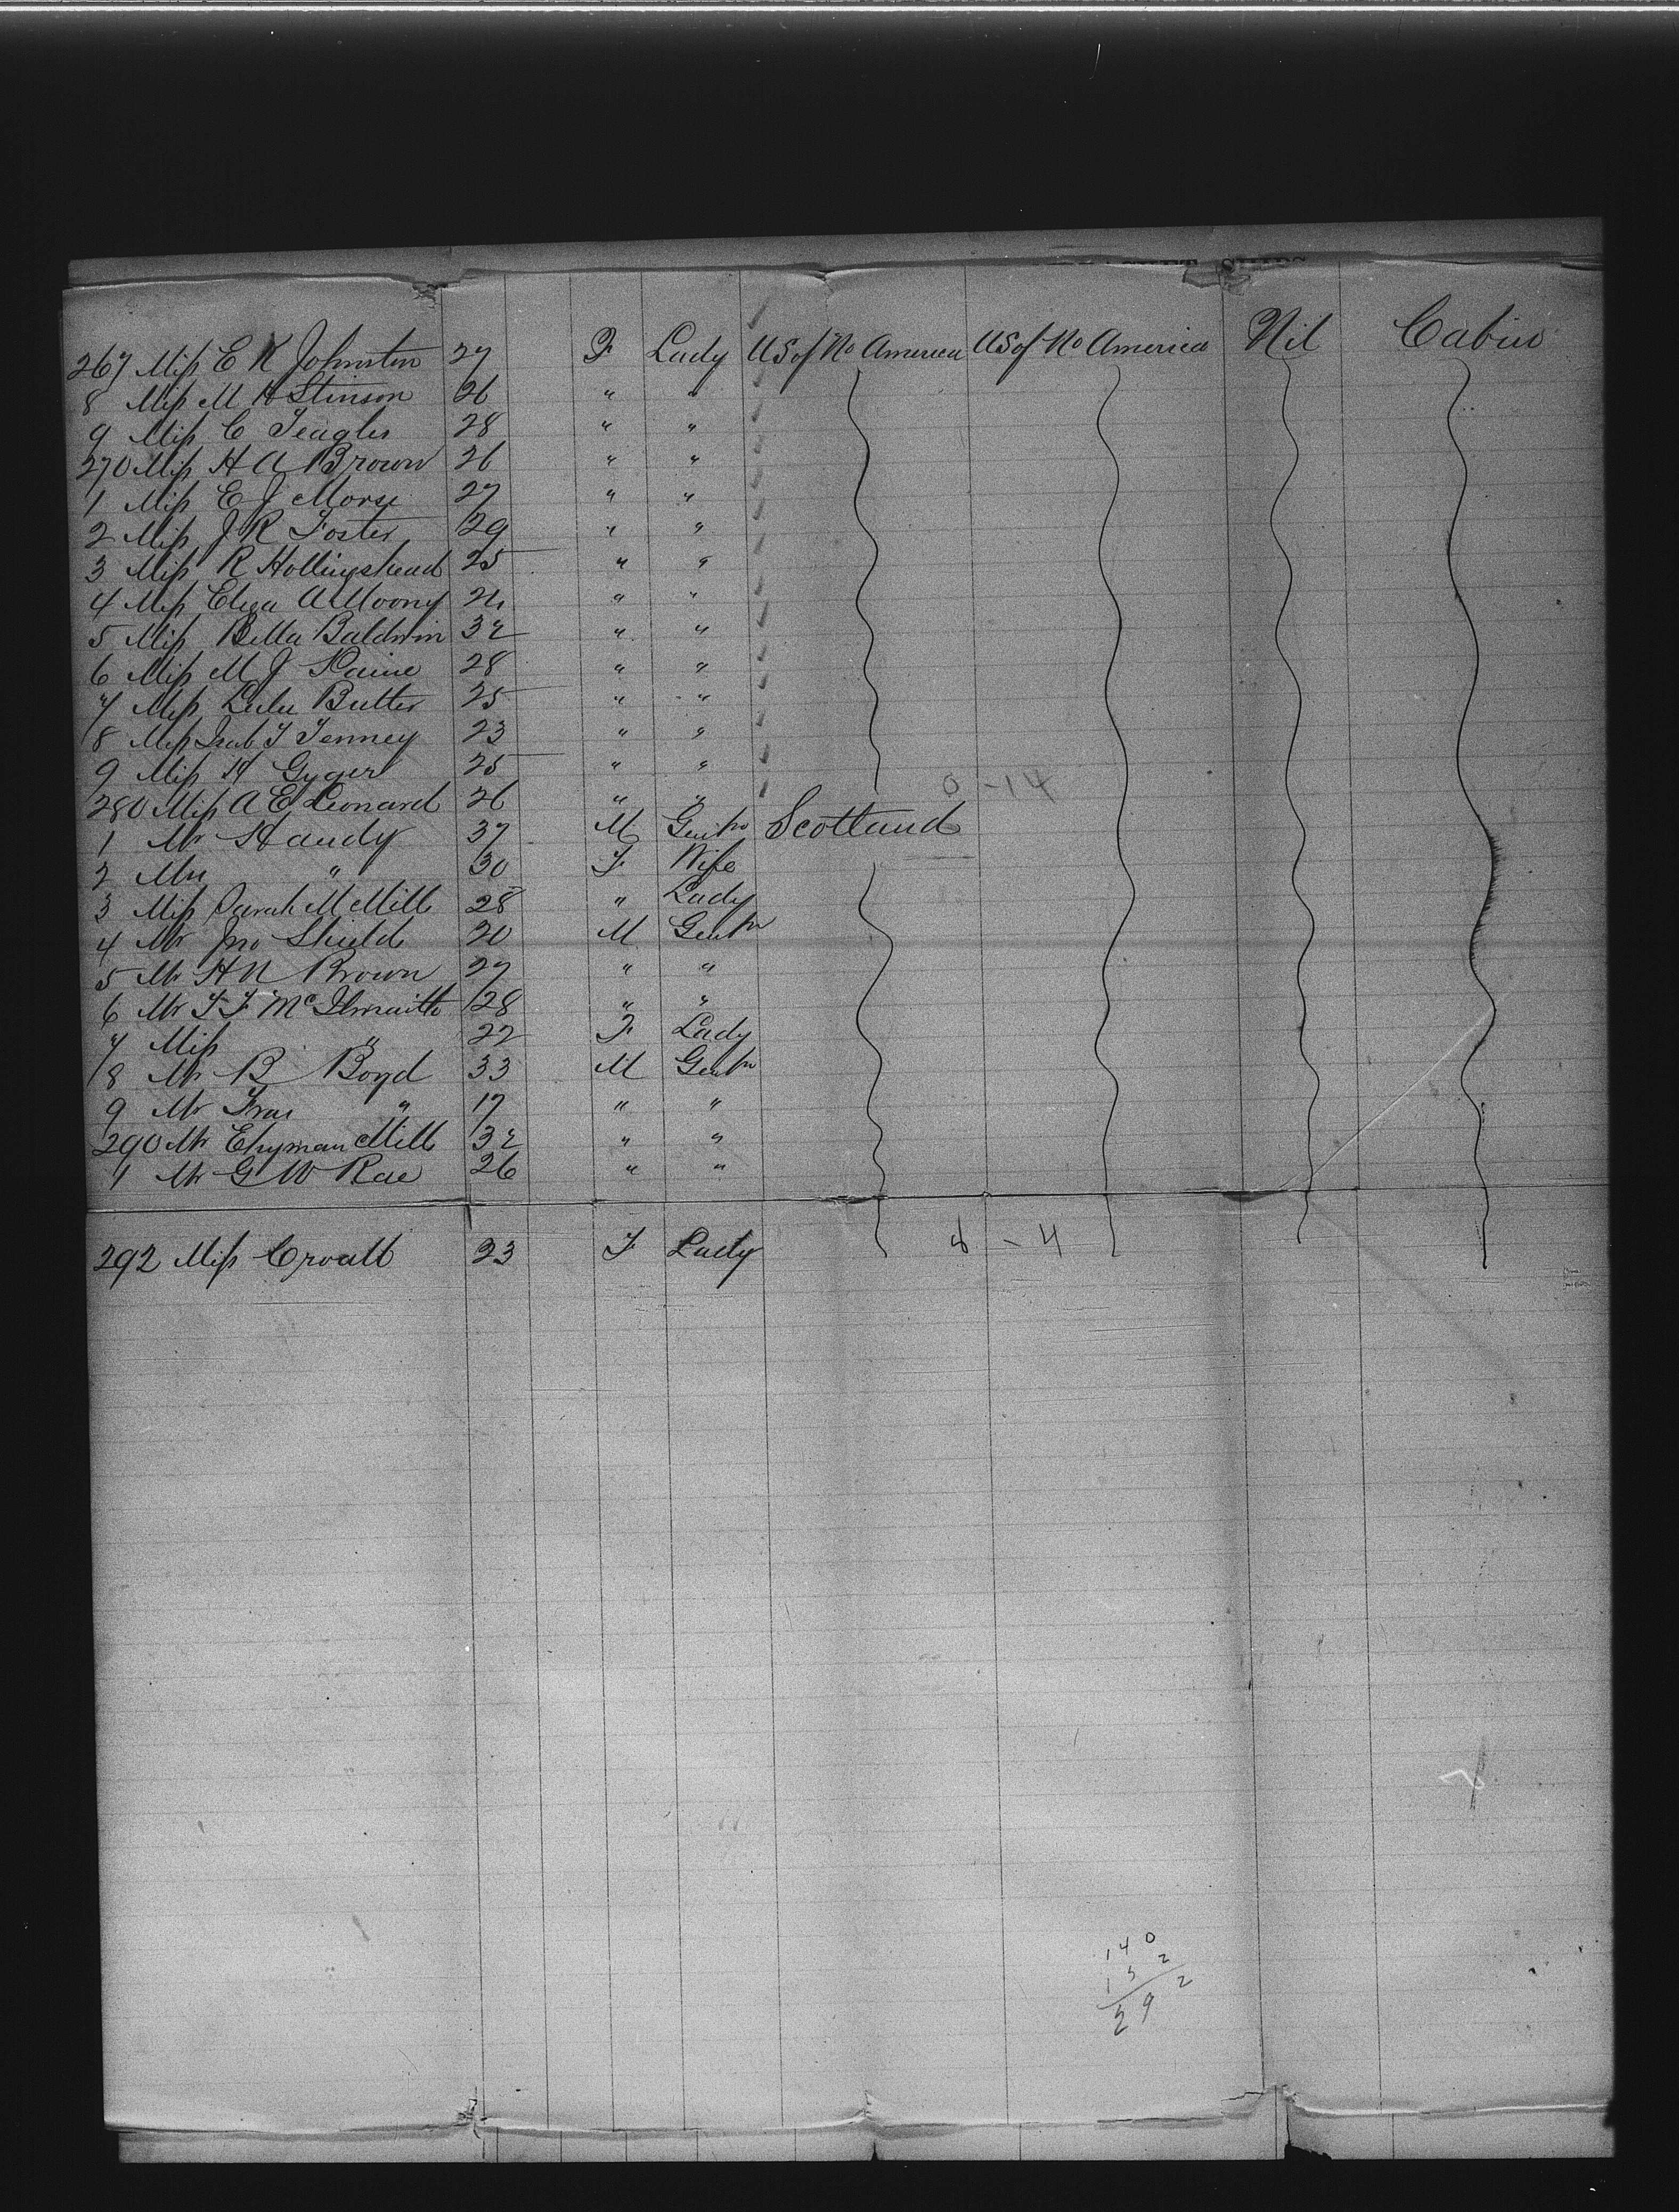 267 Miss E K Johnston 27 F Lady US of No America US of No America Nil Cabin
8 Miss M H Stinson 26 " "
9 Miss C Teagles 28 " "
270 Miss H A Brown 26 " "
1 Miss E J Morse 27 " "
2 Miss J R Foster 29 " "
3 Miss R Hollingshead 25 " "
4 Miss Eliza A Moony " "
5 Miss Bella Baldwin 32 " "
6 Miss M J Paine 28 " "
7 Miss Lulu Butter 25 " "
8 Miss T Tenney 23 " "
9 Miss H Gyger 25 " "
0 - 14
280 Miss A E Leonard 26 " "
1 Mr Handy 37 M Gentn Scotland
2 Mrs " 30 F Wife
3 Miss Sarah M Mills 28 " Lady
4 Mr Jno Shields 20 M Gentn
5 Mr H N Brown 27 " "
6 Mr T F McIlwraith 28 " "
7 Miss " 22 F Lady
8 Mr B Boyd 33 M Gentn
9 Mr Fras " 17 " "
290 Mr Mills 32 " "
1 Mr G W Rae 26 " "
292 Miss Croall 23 F Lady 8 - 4
140
152
292